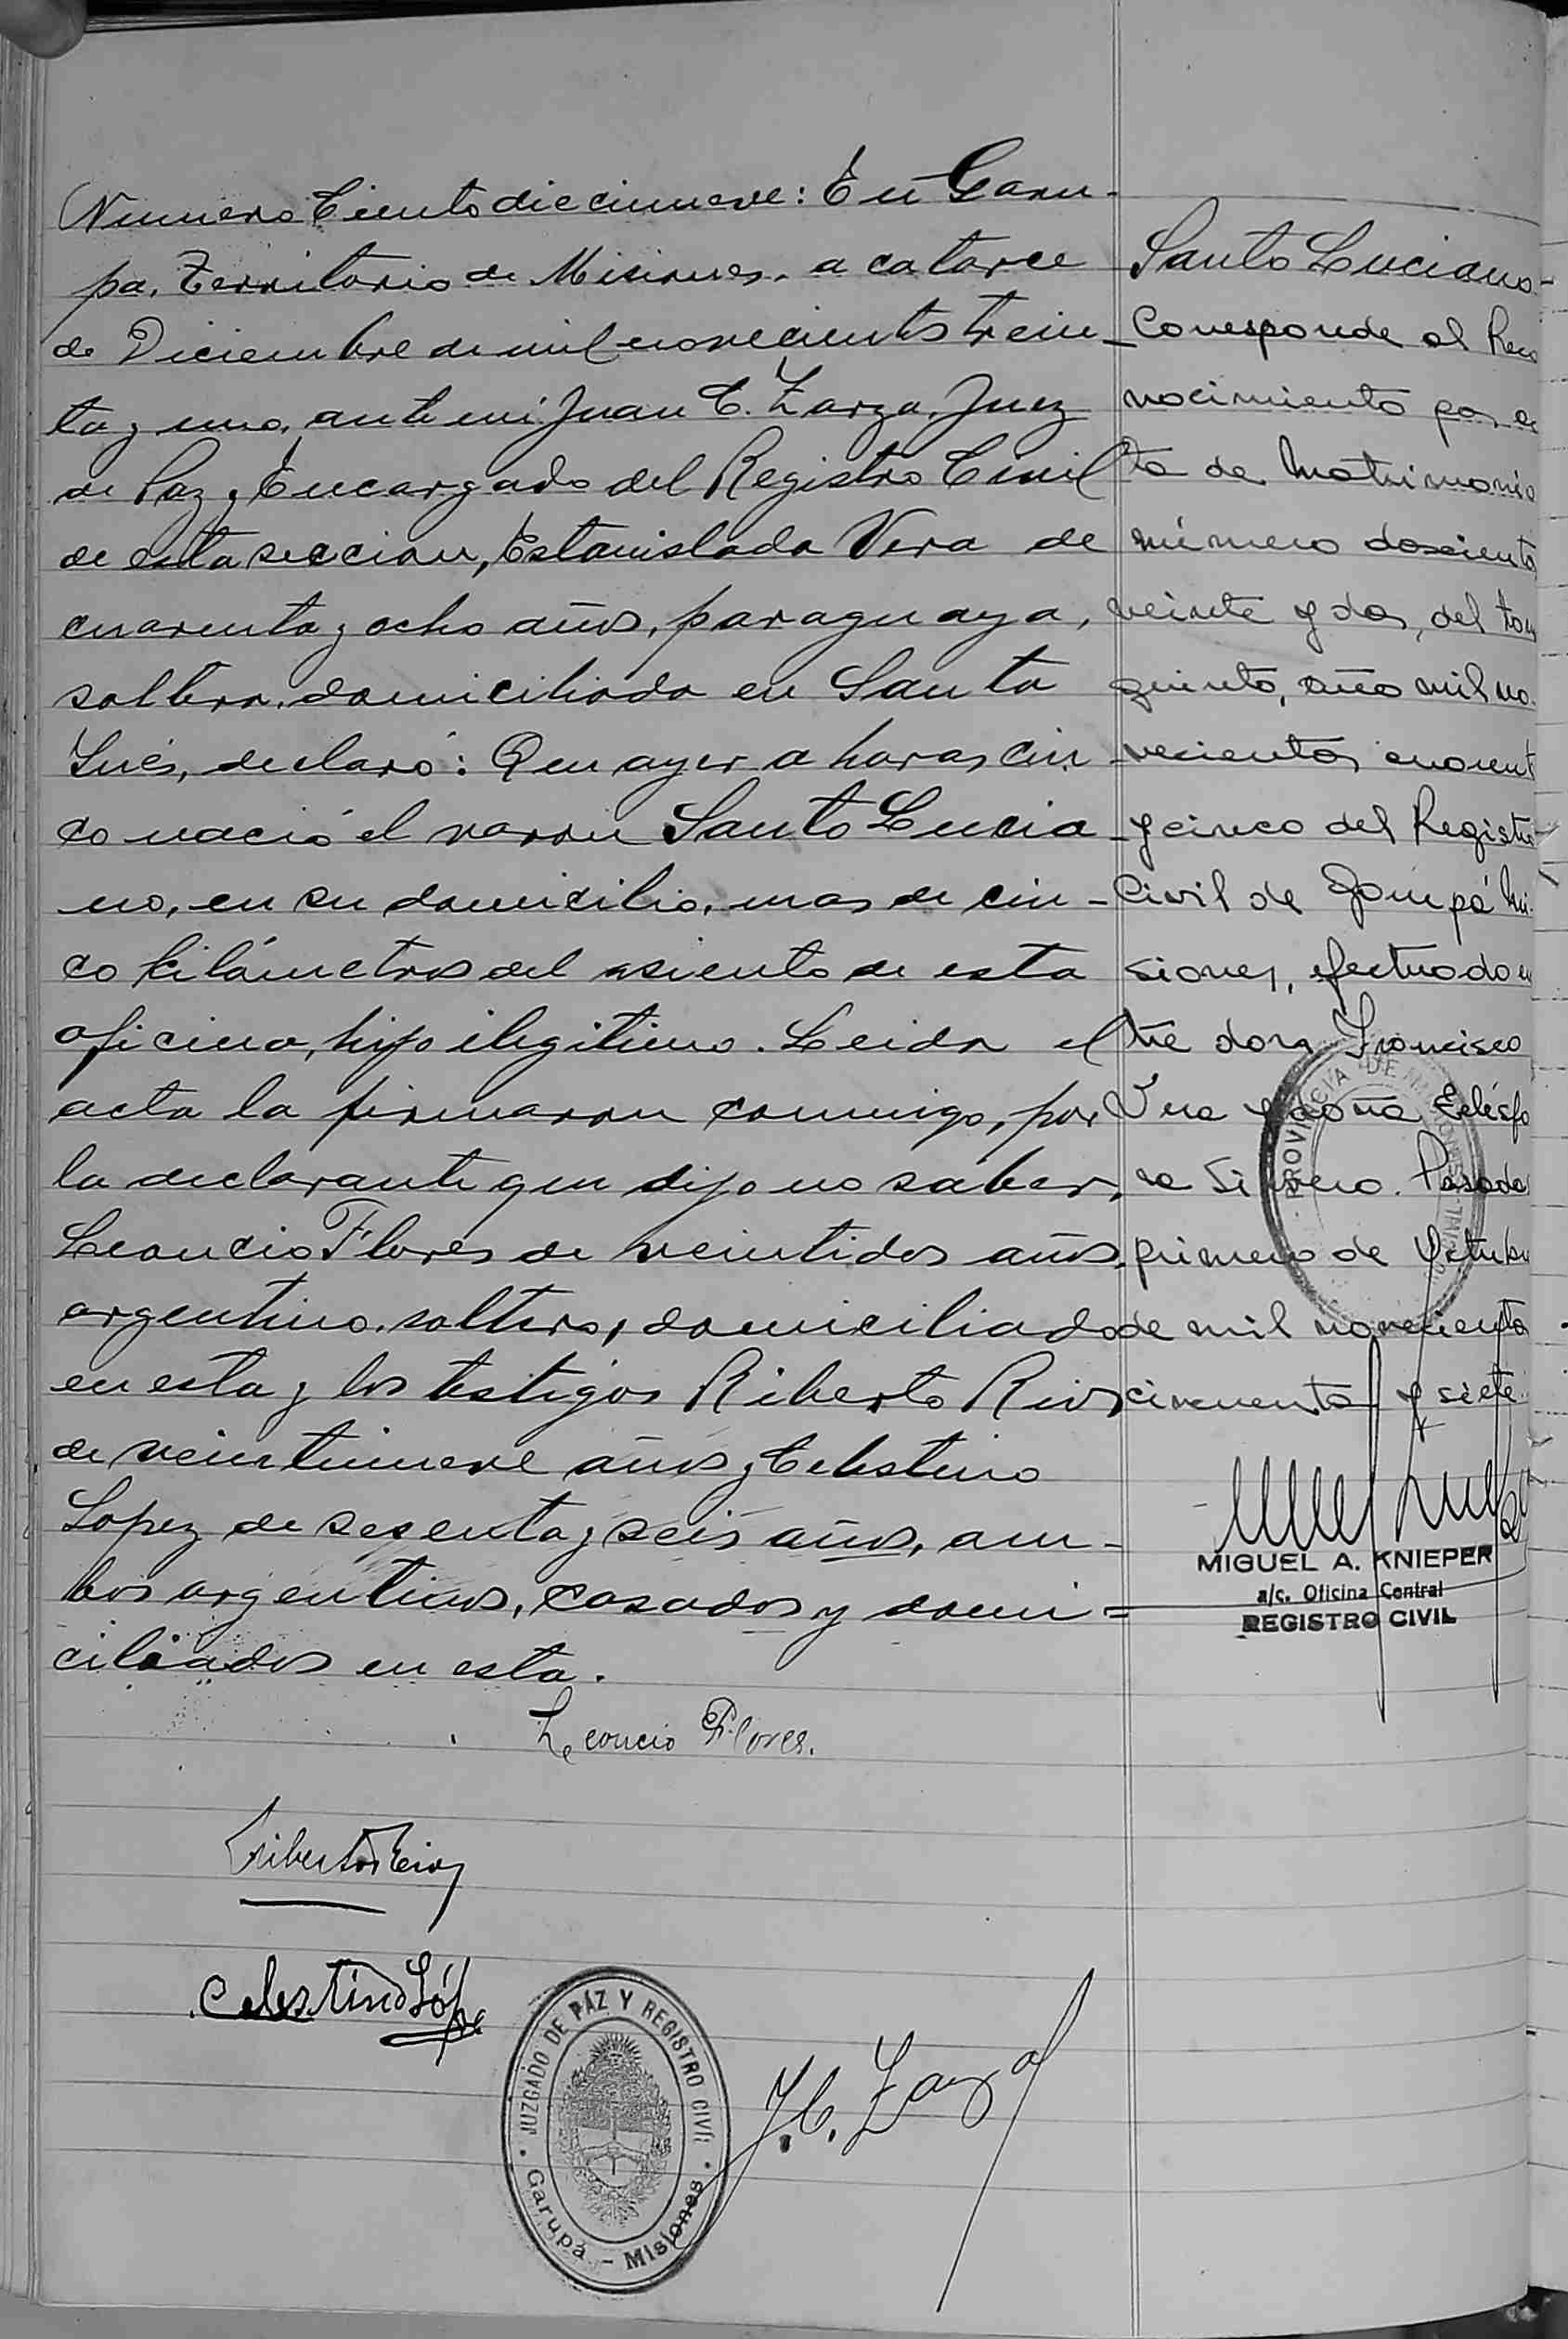 Numero Ciento diecinueve: En Garu-
pa, Territorio de Misiones, a catorce
de Diciembre de mil novecientos trein-
ta y uno, ante mi Juan C. Zarza, Juez
de Paz y Encargado del Registro Civil
de esta seccion, Estanislada Vera de
cuarenta y ocho años, paraguaya,
soltera, domiciliada en Santa
Inés, declaró: Que ayer a horas cin
co nació el varon Santo Lucia
no, en su domicilio, mas de cin-
co kilómetros del asiento de esta
oficina, hijo ilegitimo. Leida el
acta la firmaron conmigo, por
la declarante que dijo no saber,
Leoncio Flores de veintidos años,
argentino, soltero, domiciliado
en esta y los testigos Riberto Rios
de veintinueve años y Celestino
Lopez de sesenta y seis años, am-
bos argentinos, casados y domi=
ciliados en esta.
Leoncio Flores.
Celestino Lópe
J. C. Zarza
JUZGADO DE PAZ Y REGISTRO CIVIL
Garupá - Misiones
Santo Luciano-
Corresponde al Reco
nocimiento por ac
ta de Matrimonio
número doscientos
veinte y dos, del tom
quinto, año mil no-
vecientos cuarent
y cinco del Registro
Civil de Garupá Mi-
siones, efectuado en
tre dons Francisco
Vera y doña
Posadas
primero de Octubre
de mil novecientos
cincuenta y siete.
PROVINCIA DE MISIONES
MIGUEL A. KNIEPER
a/c. Oficina Central
REGISTRO CIVIL